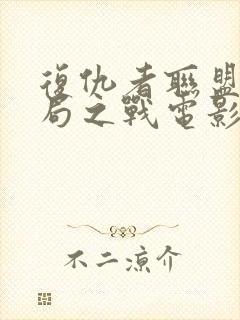 復仇者聯盟
局之戰電影
不二涼介